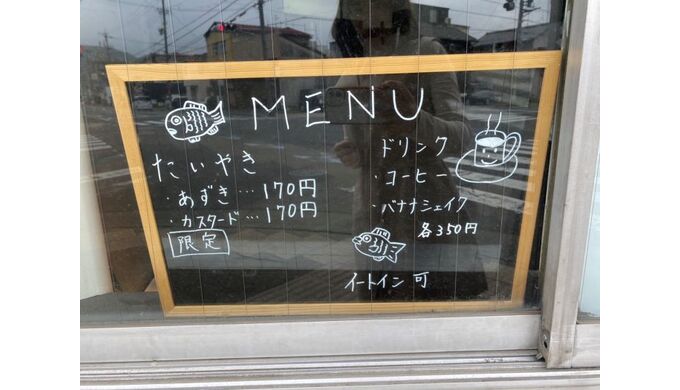 MENU
たいやき
・あずき…170円
・カスタード…170円
限定
ドリンク
・コーヒー
・バナナシェイク
各350円
イートイン可